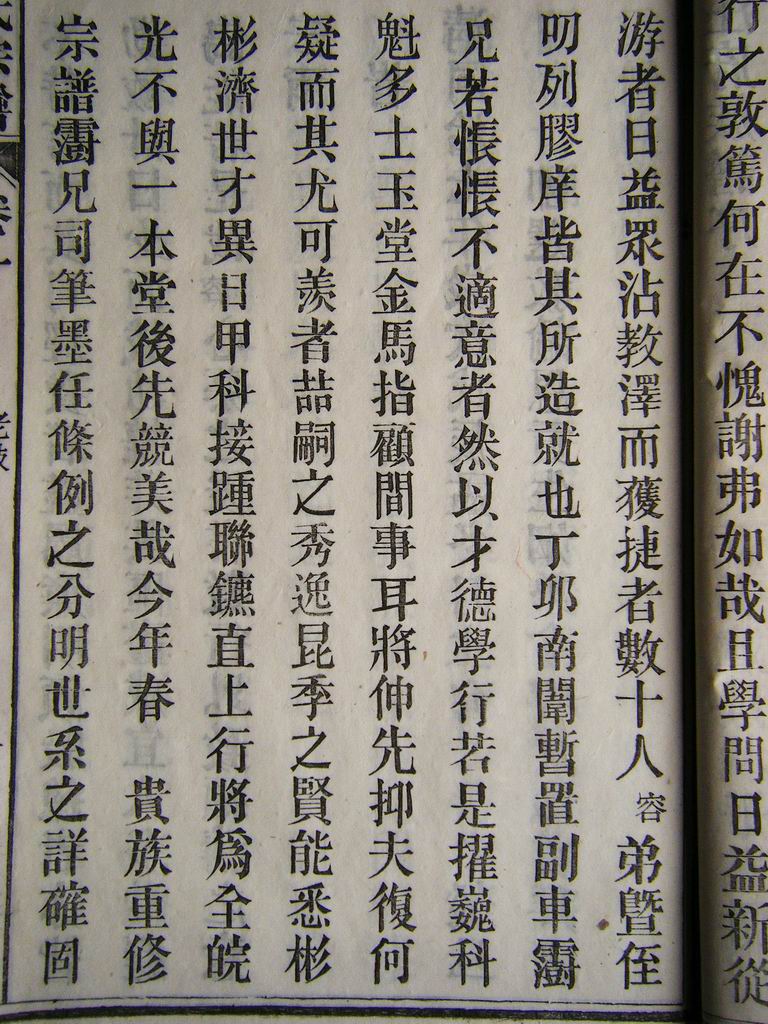 行之敦篤何在不愧謝弗如哉且學問日益新從
游者日益眾沾教澤而獲捷者數十人容弟暨侄
叨列膠庠皆其所造就也丁卯南闈暫置副車霨
兄若悵悵不適意者然以才德學行若是擢巍科
魁多士玉堂金馬指顧間事耳將伸先抑夫復何
疑而其尤可羨者喆嗣之秀逸昆季之賢能悉彬
彬濟世才異日甲科接踵聯鑣直上行將爲全皖
光不與一本堂後先競美哉今年春 貴族重修
宗譜霨兄司筆墨任條例之分明世系之詳確固